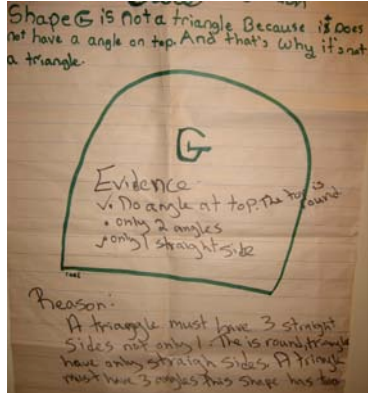 Shape G is not a triangle Because it Does
not have a angle on top. And that's why it's not
a triangle.
G
Evidence
✓. No angle at top. The top is
round
• only 2 angles
✓ only 1 straight side
Reason:
A triangle must have 3 straight
sides not only 1. The is round, triangle
have only straigh sides. A triangle
must have 3 angles this shape has two